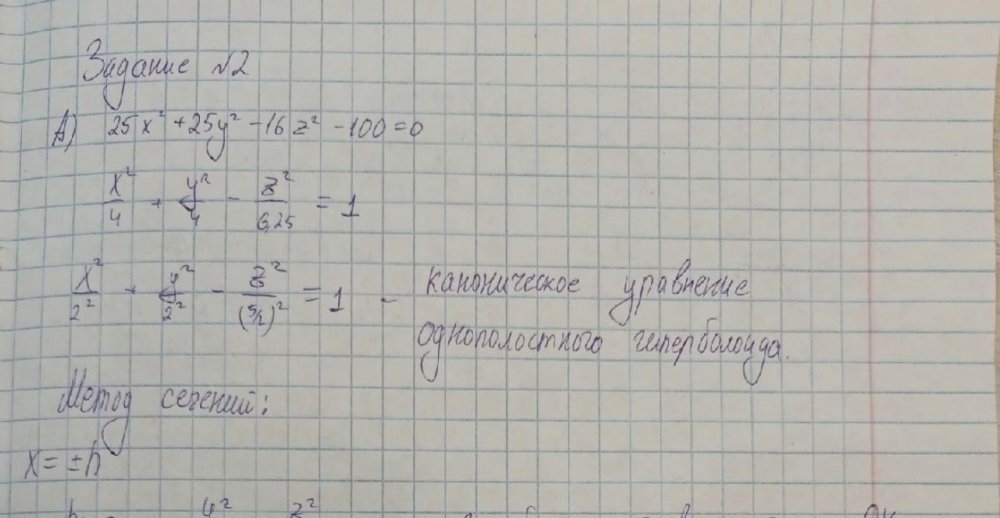 Задание №2
А) 25x² + 25y² - 16z² - 100 = 0
x²/4 + y²/4 - z²/6,25 = 1
x²/2² + y²/2² - z²/(5/2)² = 1 - каноническое уравнение
однополостного гиперболоида.
Метод сечений:
x = ±h
y² z²